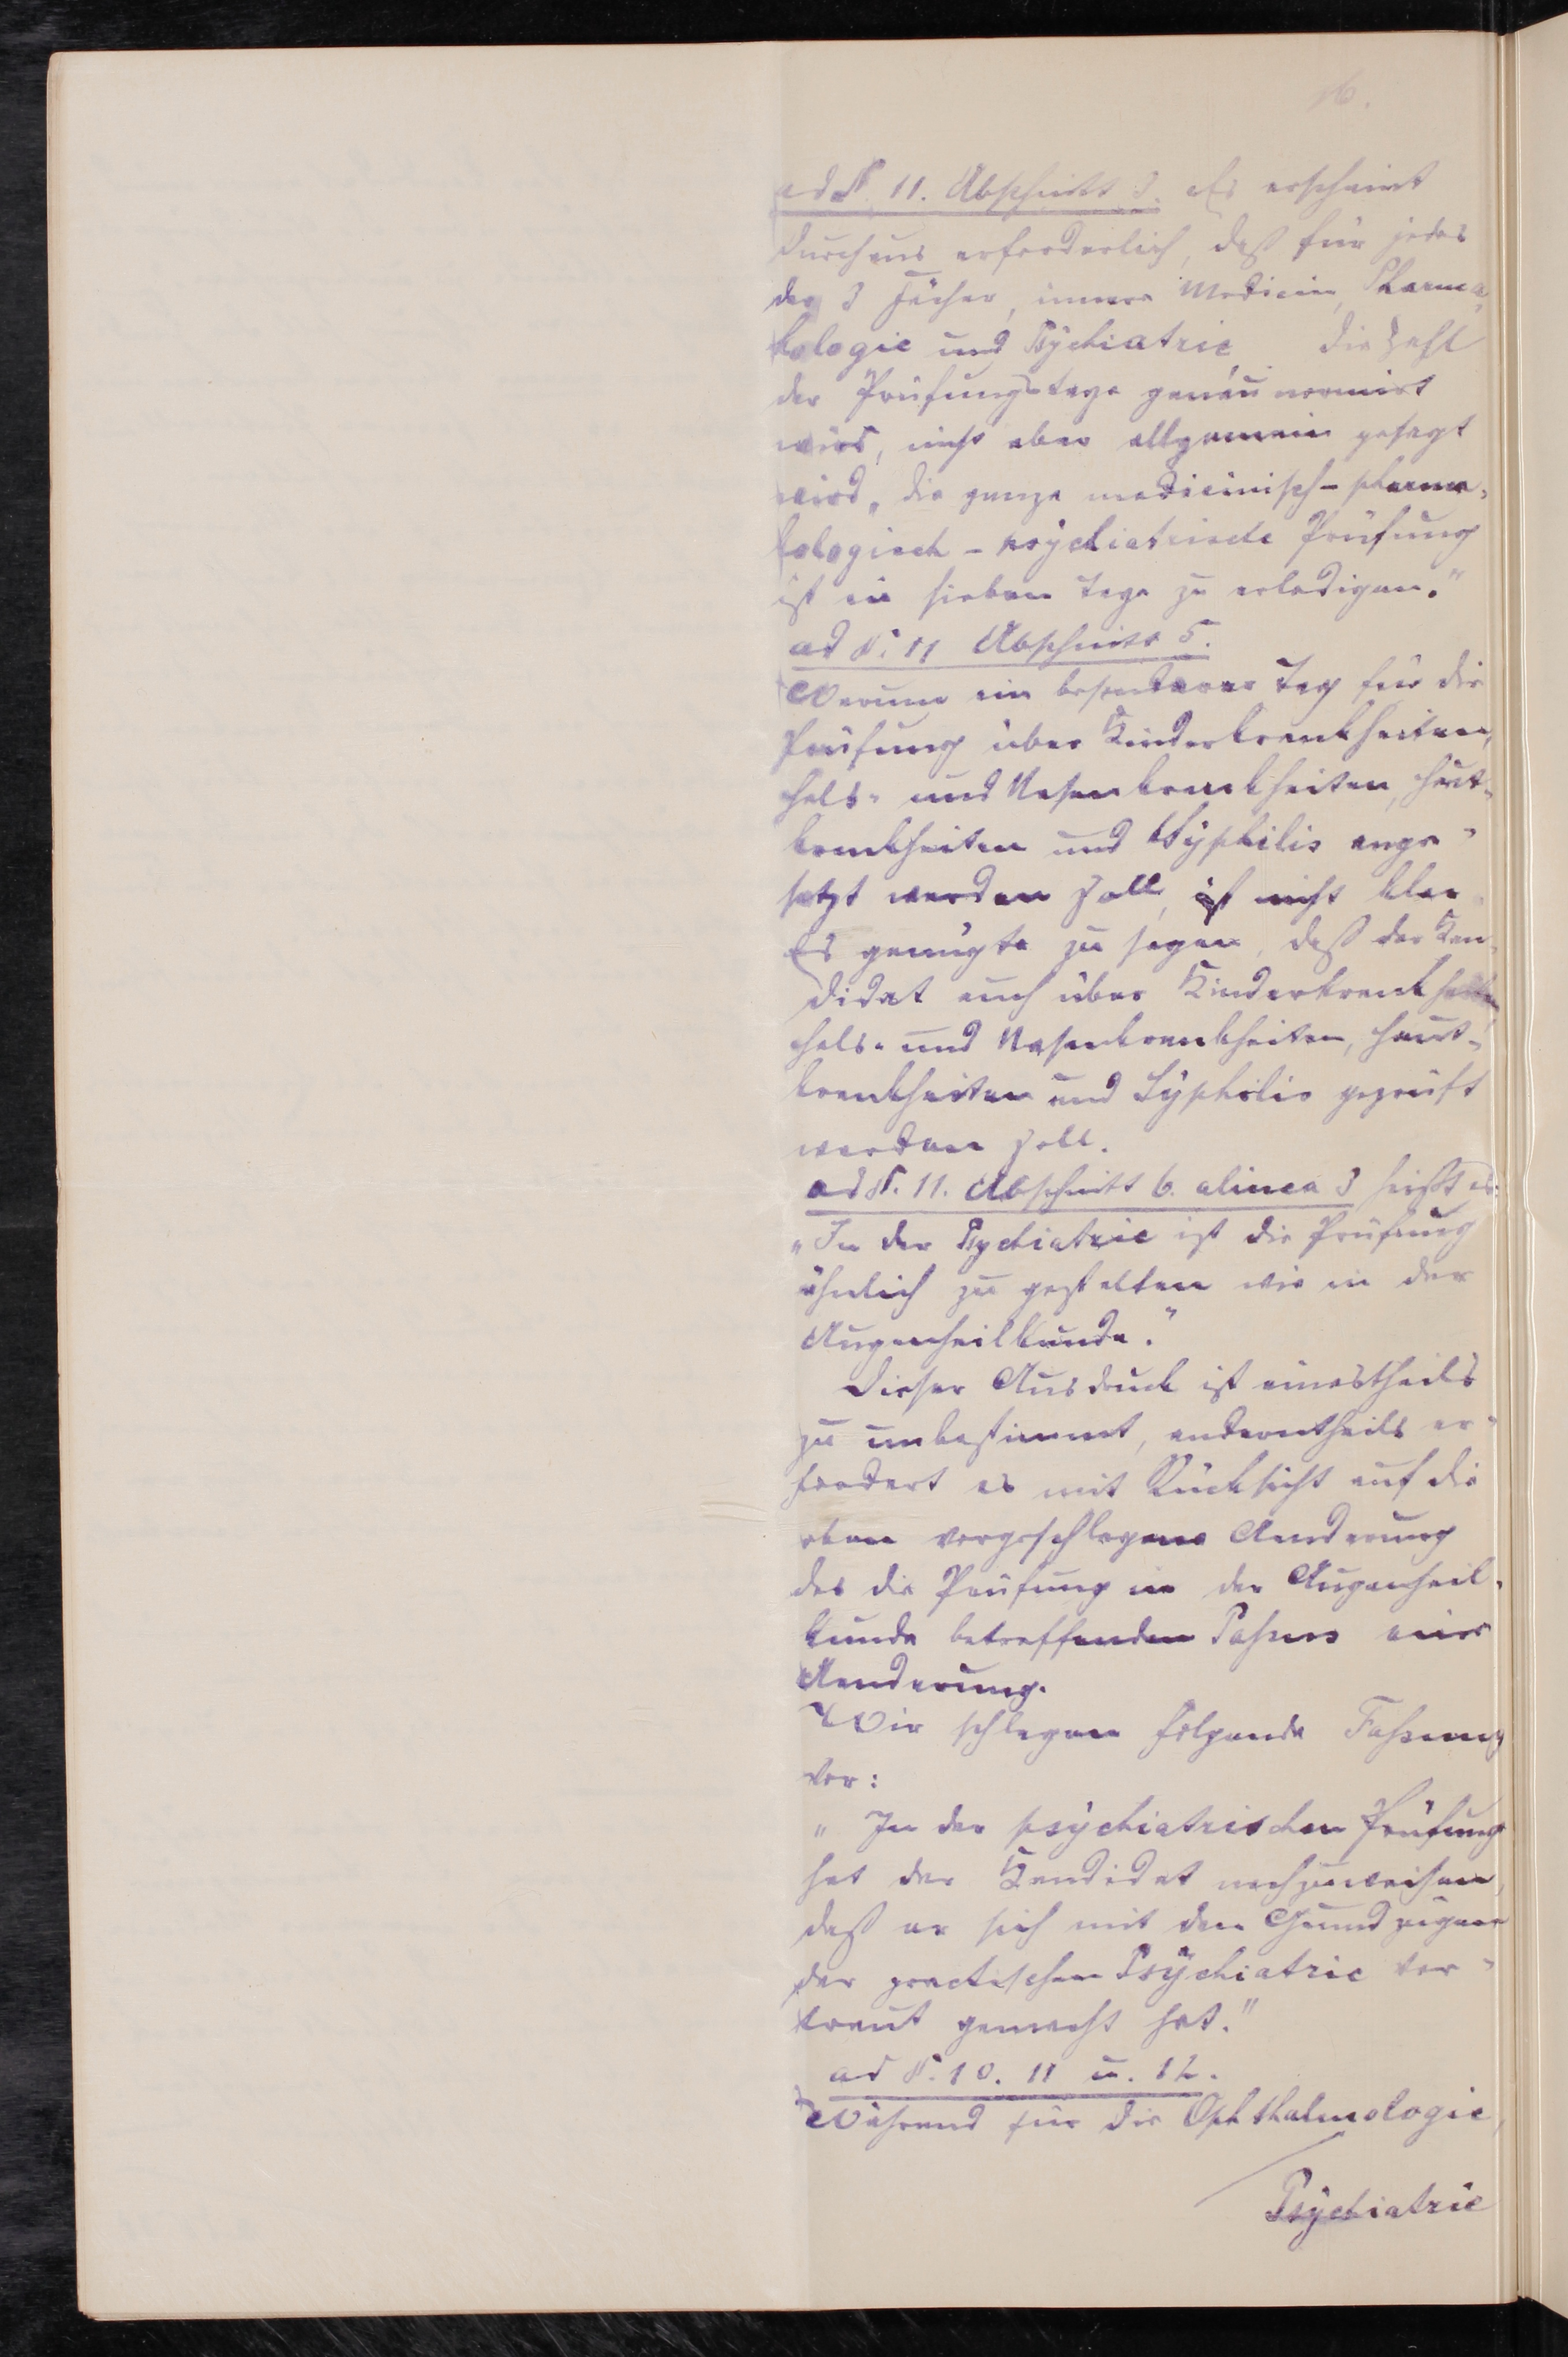 16.
ad §. 11. Abschnitt 3. Es erscheint
durchaus erforderlich, daß für jedes
der 3 Fächer, innere Medicin, Pharma-
kologie und Psychiatrie die Zahl
der Prüfungstage genau normirt
wird, nicht aber allgemein gesagt
wird „die ganze medicinisch-pharma-
kologisch-psychiatrische Prüfung
ist in sieben Tage zu erledigen."
ad §. 11 Abschnitt 5.
Warum ein besonderer Tag für die
Prüfung über Kinderkrankheiten,
Hals- und Nasenkrankheiten, Haut-
krankheiten und Syphilis ange-
setzt werden soll, ist nicht klar.
Es genügte zu sagen, daß der Kan-
didat auch über Kinderkrankheiten,
Hals- und Nasenkrankheiten, Haut-
krankheiten und Syphilis geprüft
werden soll.
ad §. 11. Abschnitt 6. alinea 3 heißt es:
„In der Psychiatrie ist die Prüfung
ähnlich zu gestalten wie in der
Augenheilkunde."
Dieser Ausdruck ist einestheils
zu unbestimmt, anderntheils er-
fordert es mit Rücksicht auf die
oben vorgeschlagene Aenderung
des die Prüfung in der Augenheil-
kunde betreffenden Passus eine
Aenderung.
Wir schlagen folgende Fassung
vor:
„In der psychiatrischen Prüfung
hat der Kandidat nachzuweisen,
daß er sich mit den Grundzügen
der practischen Psychiatrie ver-
traut gemacht hat."
ad §. 10. 11 u. 12.
Während für die Ophthalmologie,
Psychiatrie